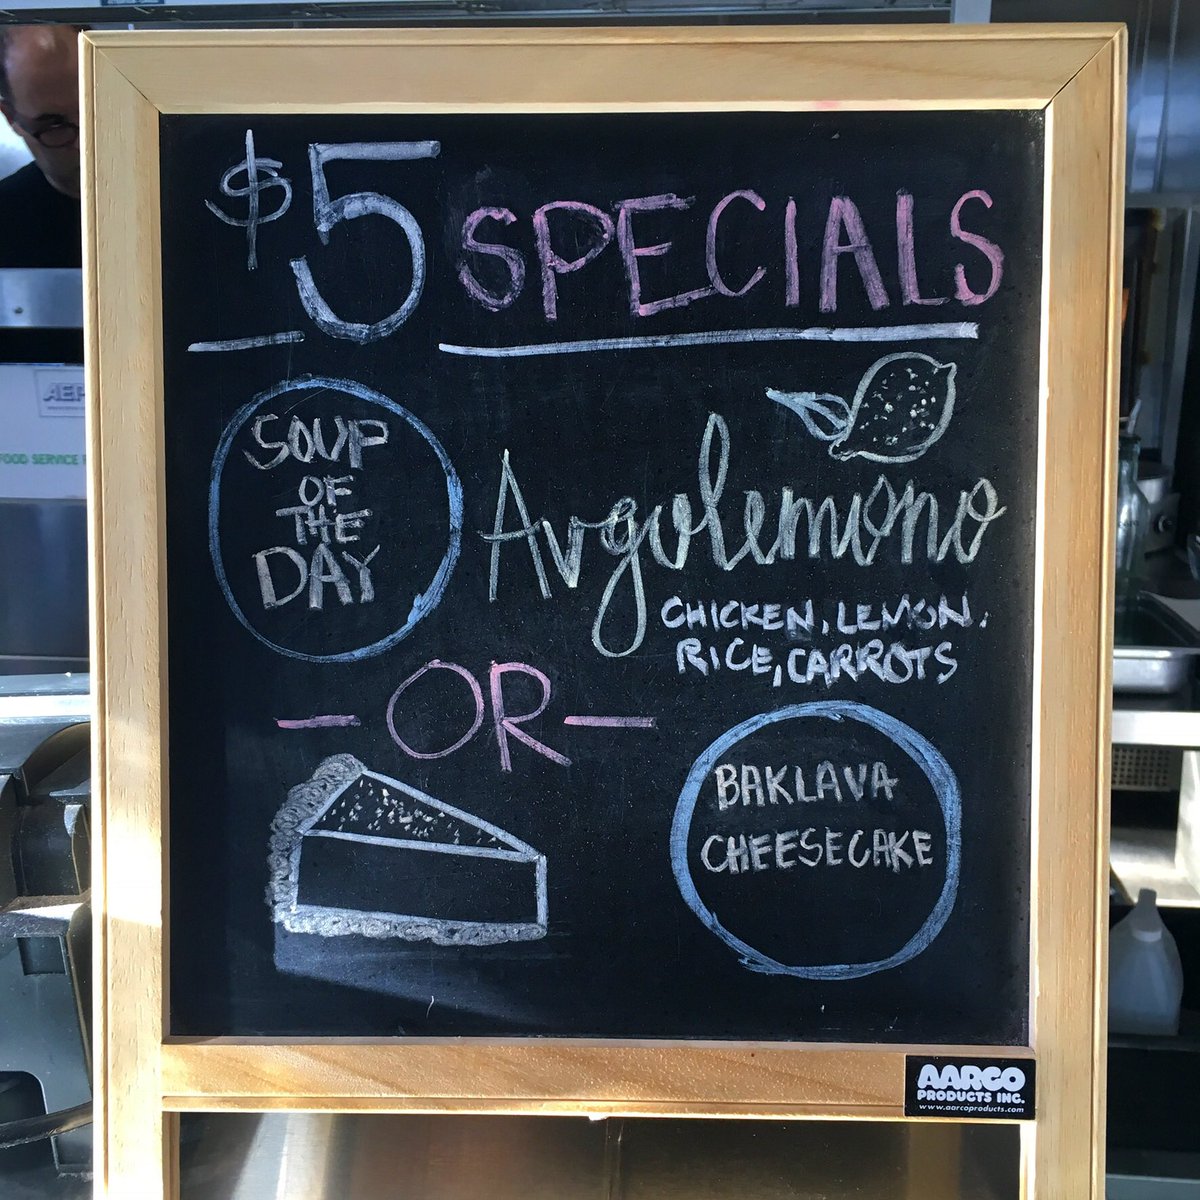 $5 SPECIALS
SOUP
OF
THE
DAY
Avgolemono
CHICKEN, LEMON,
RICE, CARROTS
- OR -
BAKLAVA
CHEESECAKE
AARCO
PRODUCTS INC.
www.aarcoproducts.com
FOOD SERVICE